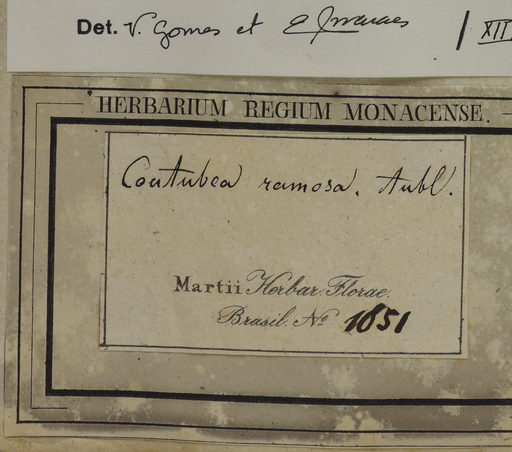 Det. V. Gomes et
/ XII
HERBARIUM REGIUM MONACENSE.
Coutubea ramosa. Aubl.
Martii Herbar. Florae
Brasil. No 1051